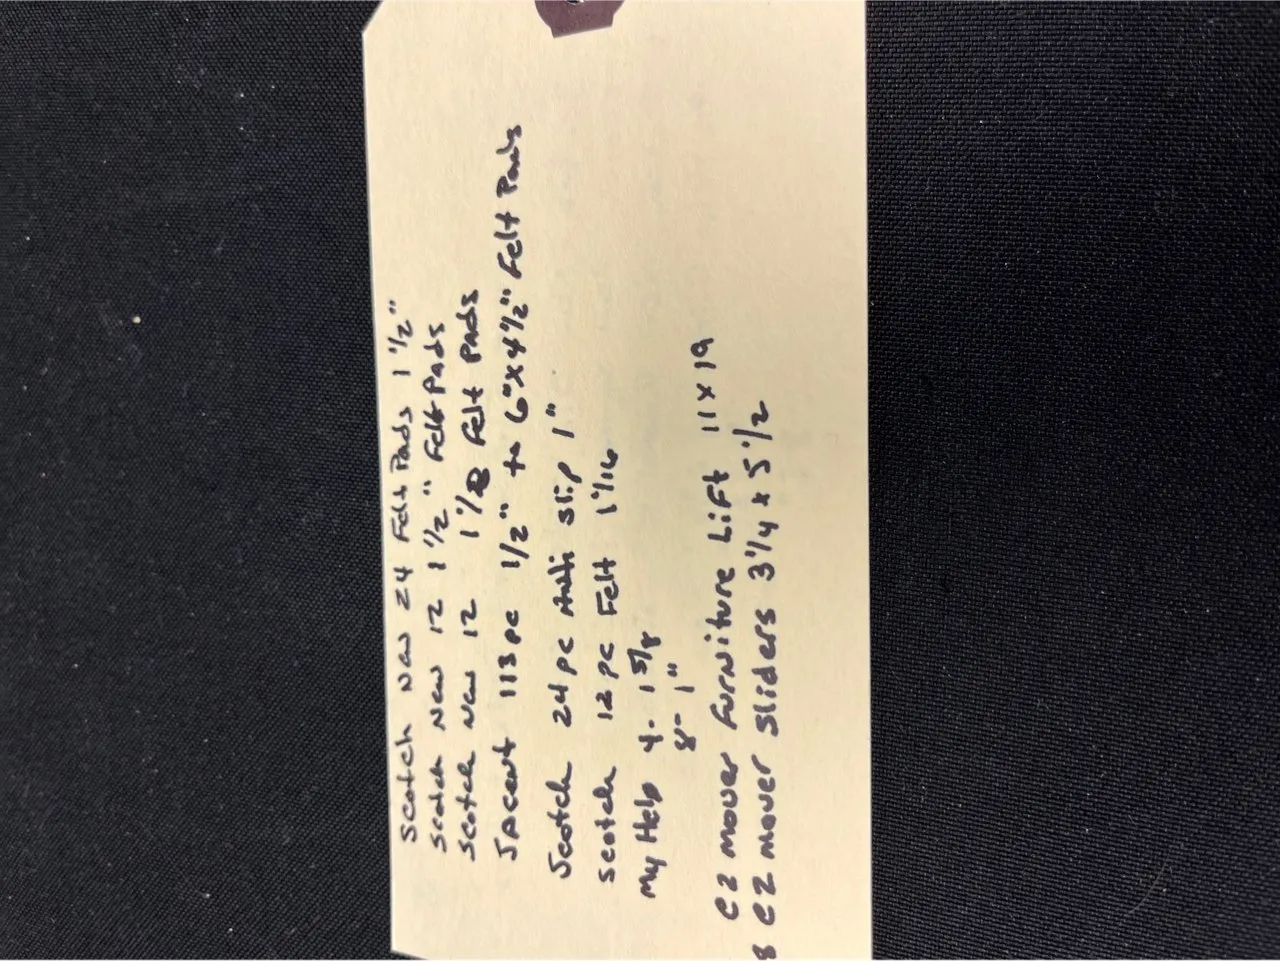 Scotch New 24 Felt Pads 1 1/2"
Scotch New 12 1 1/2" Felt Pads
Scotch New 12 1 1/2 Felt Pads
113 pc 1/2" to 6"x4 1/2" Felt Pads
Scotch 24 pc Anti Slip 1"
Scotch 12 pc Felt 1 1/16
My Help 4- 1 5/8
8- 1"
EZ mover Furniture Lift 11x19
8 EZ mover Sliders 3 1/4 x 5 1/2